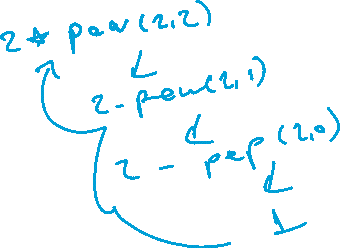 2 * pow(2,2)
2 - pow(2,1)
2 - pop(2,0)
1